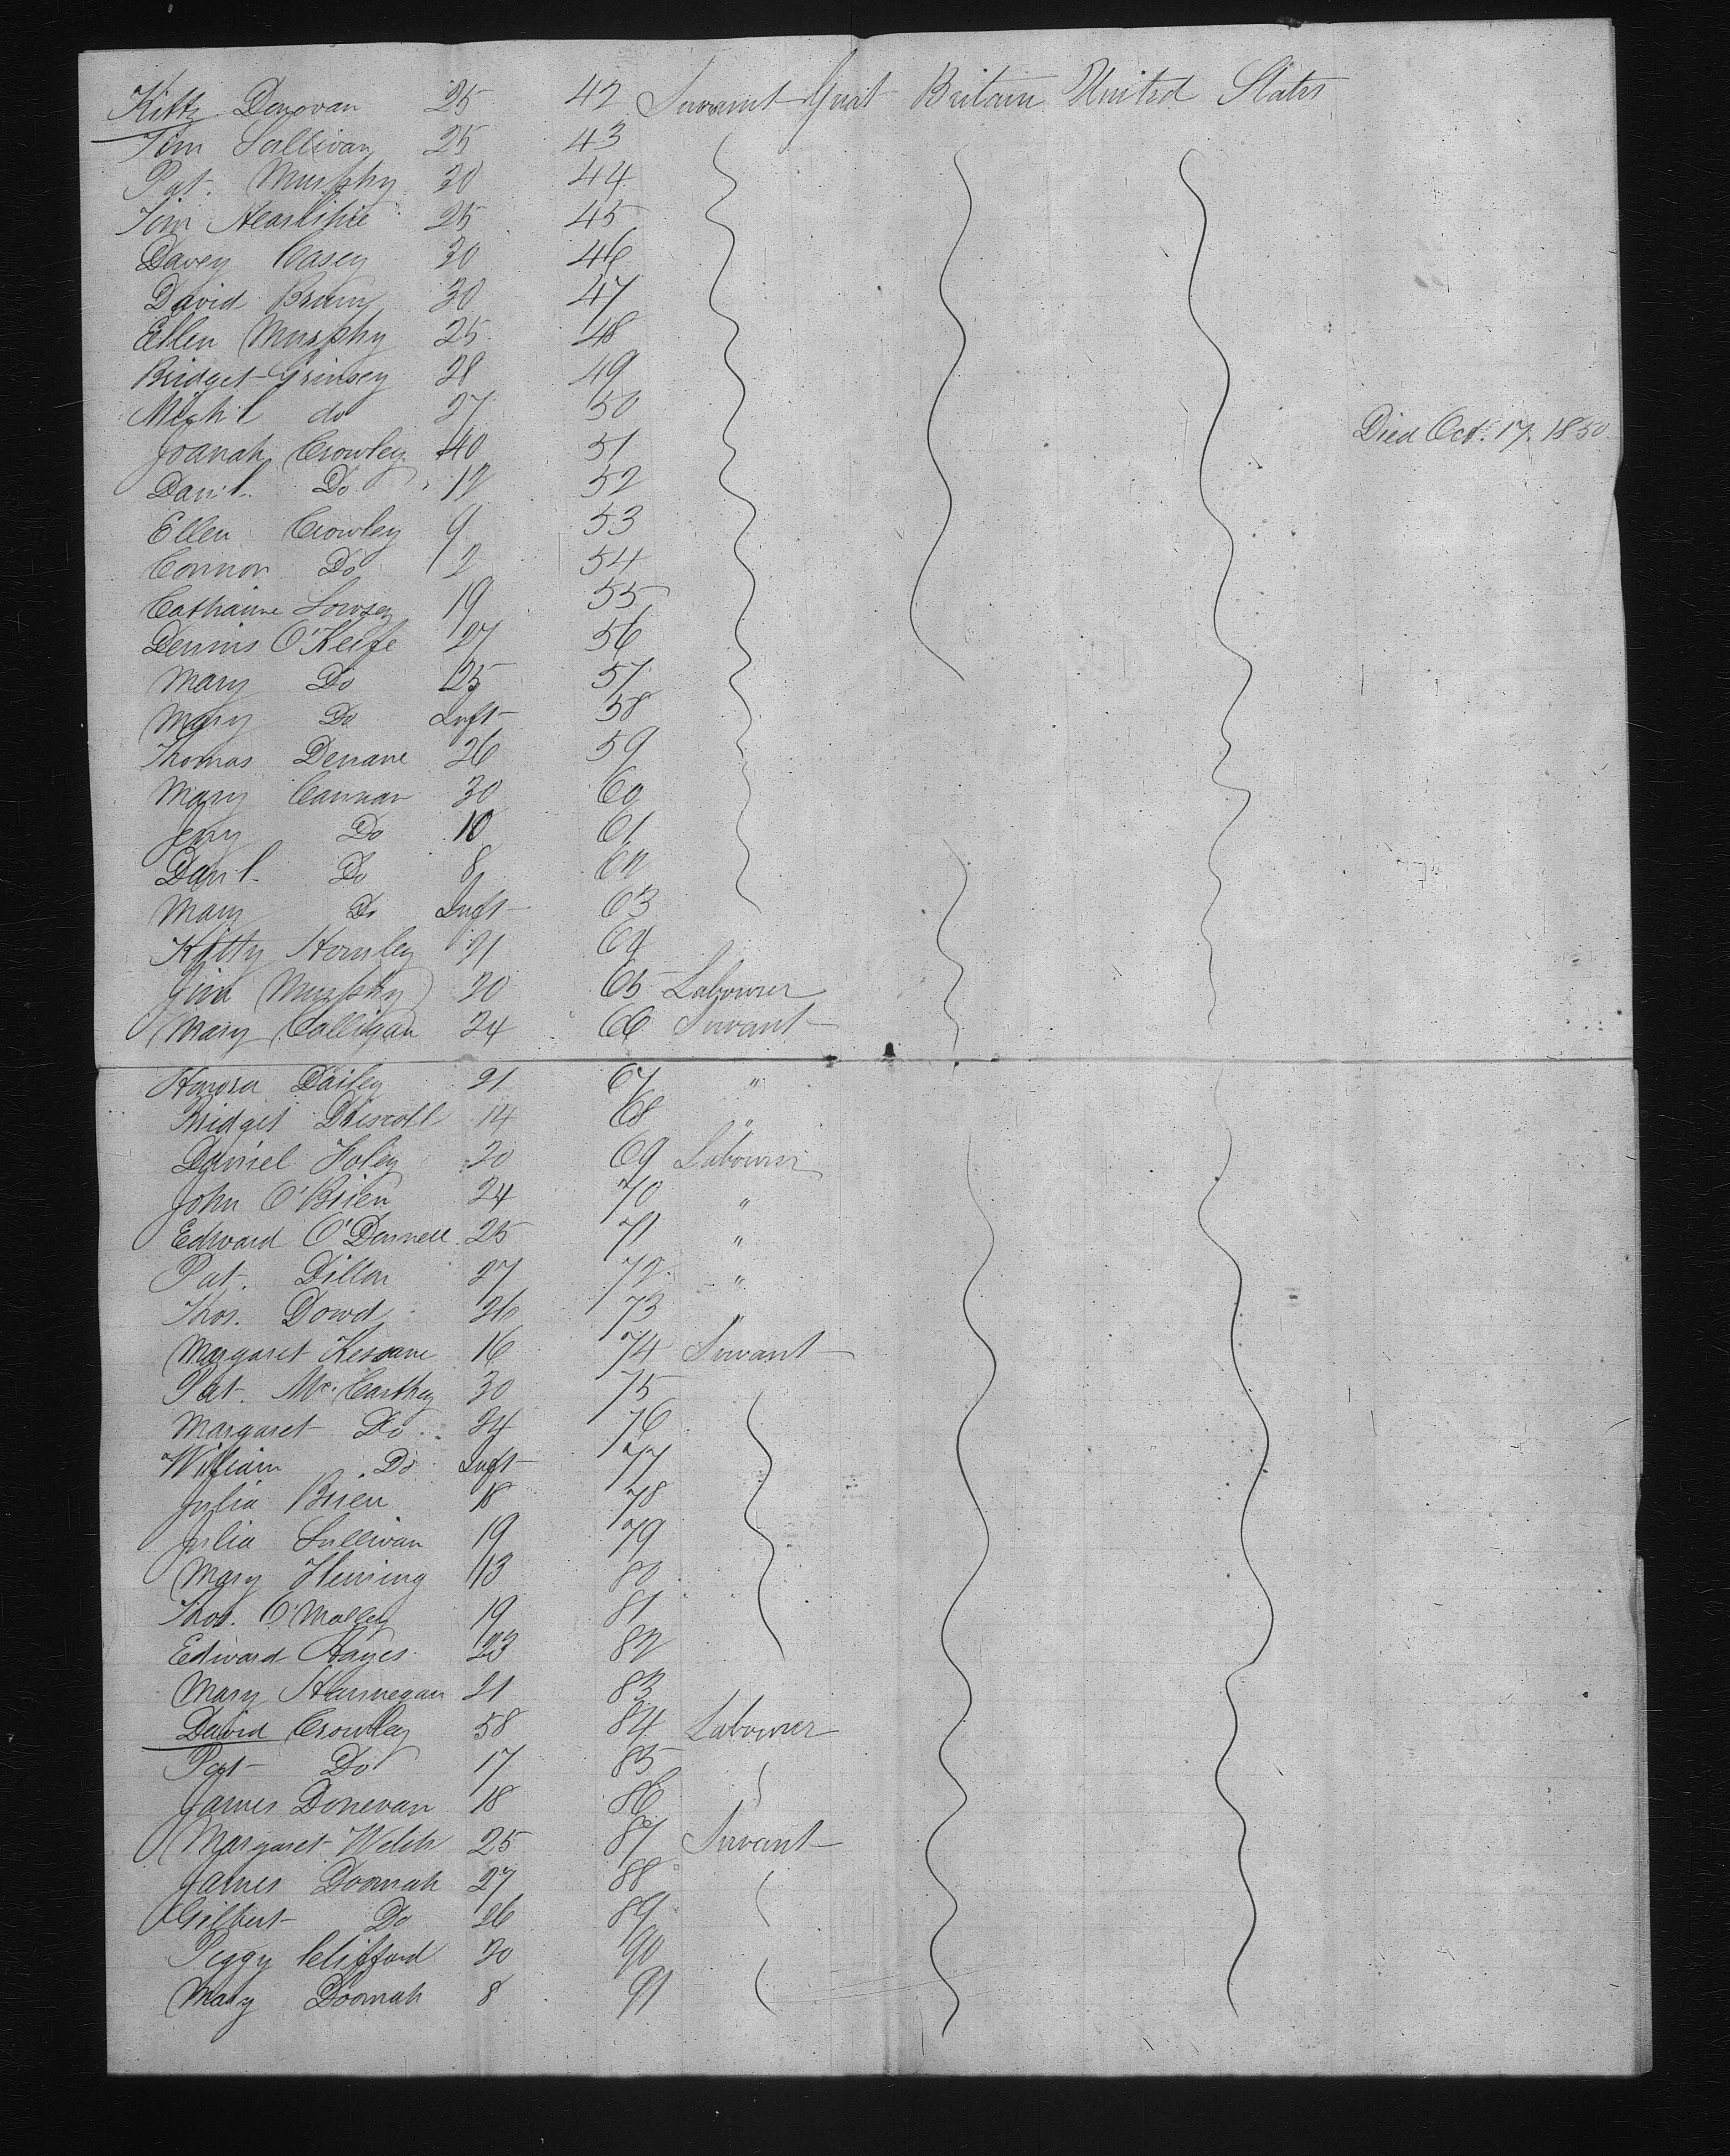 Kitty Donovan 25 42 Servant Great Britain United States
Tim Sullivan 25 43
Pat. Murphy 20 44
Tim 25 45
Davey Casey 30 46
David 30 47
Ellen Murphy 25 48
Bridget 28 49
Michl do 27 50
Joanah Crowley 40 51 Died Oct. 17. 1850
Danl. Do 12 52
Ellen Crowley 9 53
Connor Do 2 54
Catharine 19 55
Dennis O'Keefe 27 56
Mary Do 25 57
Mary Do Inft 58
Thomas 26 59
Mary Cannan 30 60
Jerry Do 10 61
Danl. Do 8 62
Mary Do Inft 63
Kitty 21 64
Jim Murphy 20 65 Labourer
Mary Calligan 24 66 Servant
Honora Dailey 21 67 "
Bridget Driscoll 14 68 "
Daniel Foley 20 69 Labourer
John O'Brien 24 70 "
Edward O'Donnell 25 71 "
Pat. Dillon 27 72 "
Thos. Dowd 26 73 "
Margaret 16 74 Servant
Pat. Mc.Carthey 30 75
Margaret Do 24 76
William Do Inft 77
Julia Brien 18 78
Julia Sullivan 19 79
Mary Fleming 13 80
Thos. O'Malley 19 81
Edward Hayes 23 82
Mary Hannegan 21 83
David Crowley 58 84 Labourer
Pat Do 17 85
James Donevan 18 86
Margaret Welch 25 87 Servant
James Doonah 27 88
Gilbert Do 26 89
Peggy Clifford 20 90
Mary Doonah 8 91